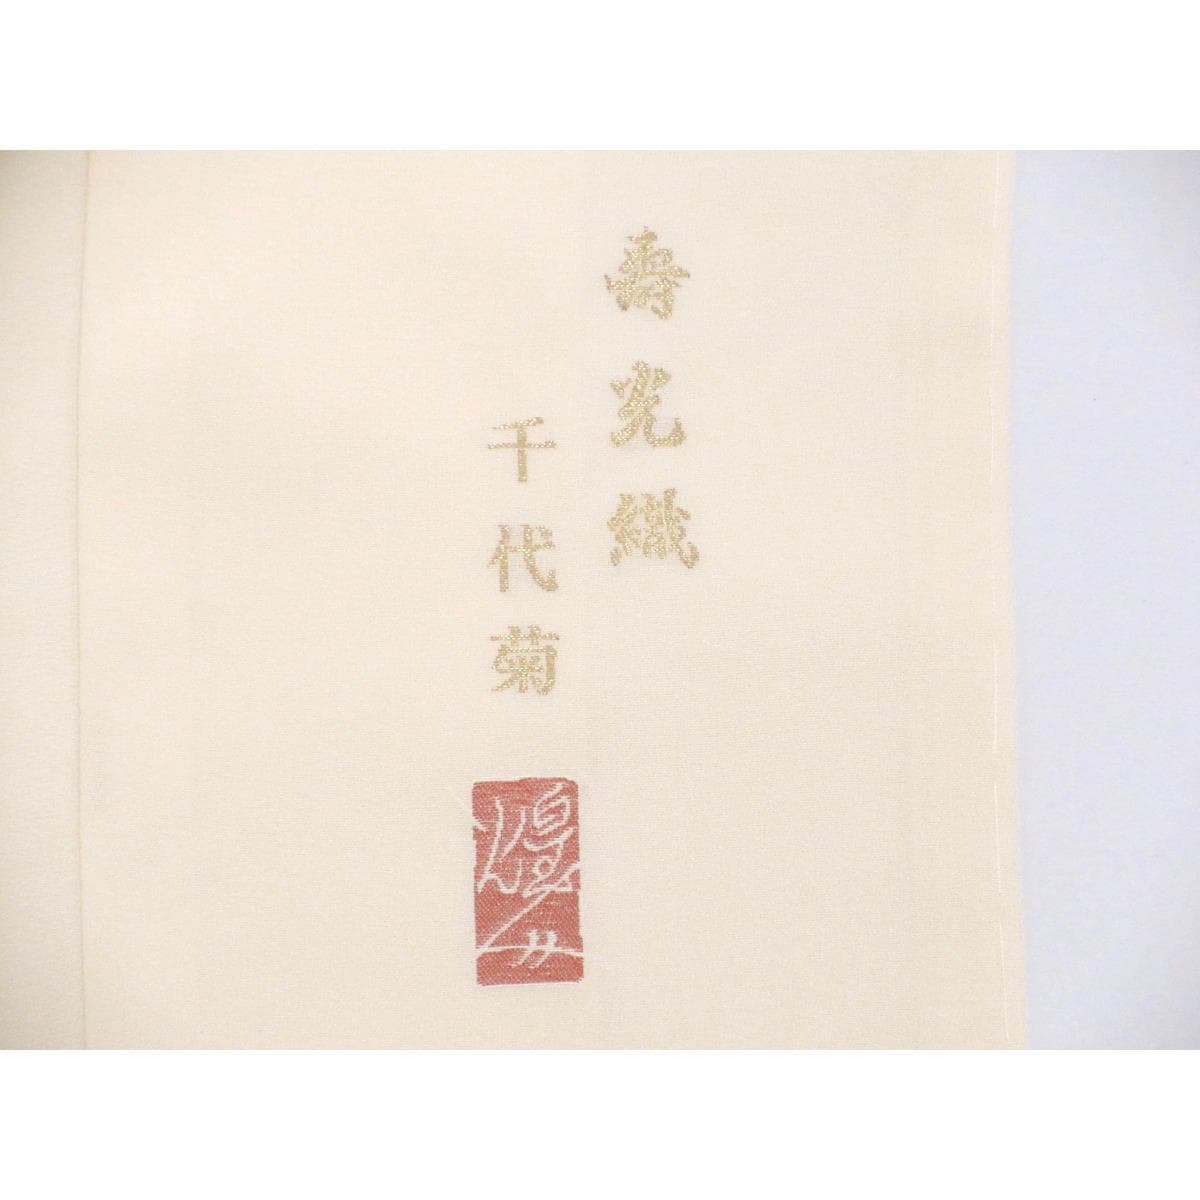 寿光織
千代菊